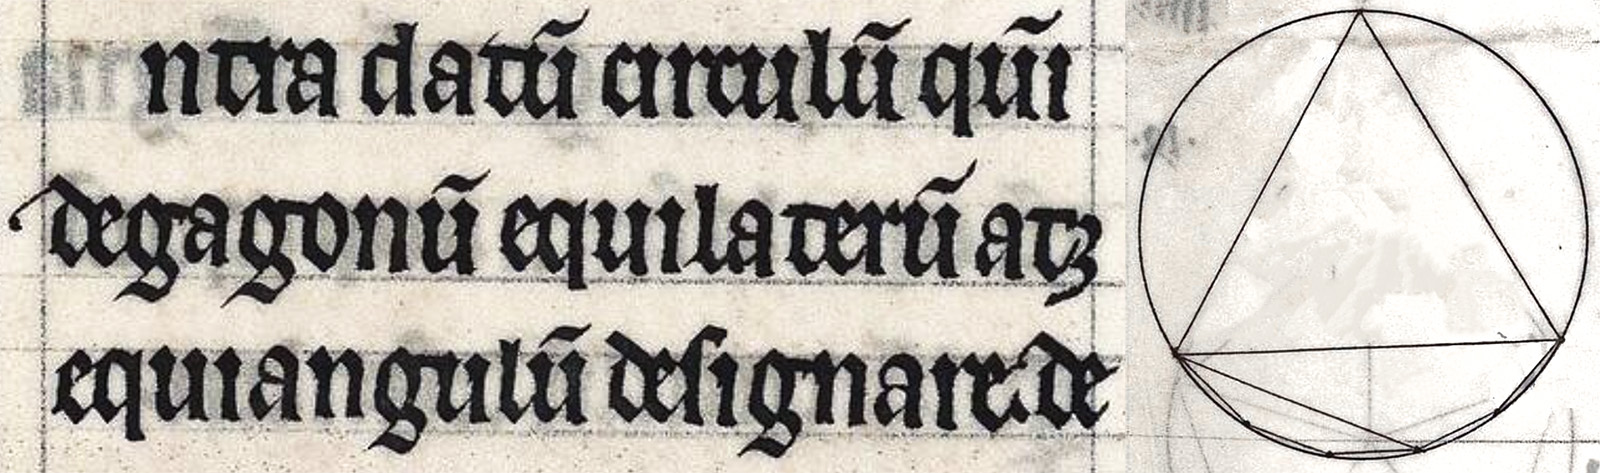 ntra datū circulū qūi
degagonū equilaterū atqȝ
equiangulū designare. de